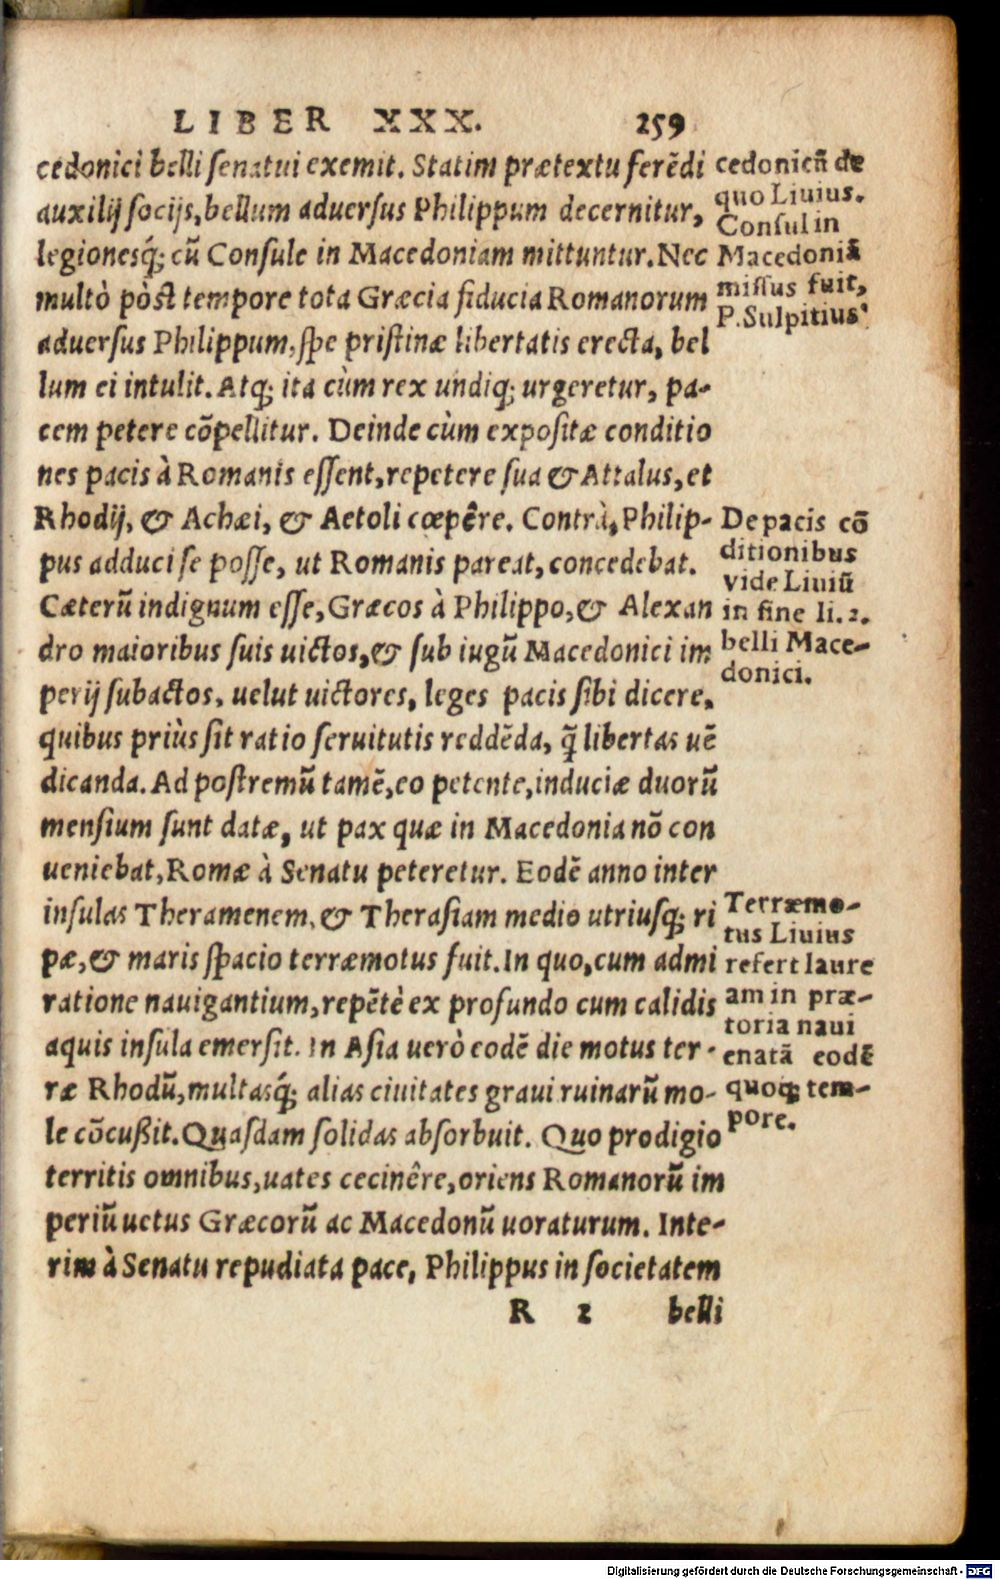 LIBER XXX. 259
cedonici belli senatui exemit. Statim prætextu ferẽdi
auxilij socijs, bellum aduersus Philippum decernitur,
legionesq́; cũ Consule in Macedoniam mittuntur. Nec
multò pòst tempore tota Græcia fiducia Romanorum
aduersus Philippum, spe pristinæ libertatis erecta, bel
lum ei intulit. Atq; ita cùm rex undiq; urgeretur, pa-
cem petere cõpellitur. Deinde cùm expositæ conditio
nes pacis à Romanis essent, repetere sua & Attalus, et
Rhodij, & Achæi, & Aetoli cœpêre. Contrà, Philip-
pus adduci se posse, ut Romanis pareat, concedebat.
Cæterũ indignum esse, Græcos à Philippo, & Alexan
dro maioribus suis uictos, & sub iugũ Macedonici im
perij subactos, uelut uictores, leges pacis sibi dicere,
quibus priùs sit ratio seruitutis reddẽda, q̃ libertas uẽ
dicanda. Ad postremũ tamẽ, eo petente, induciæ duorũ
mensium sunt datæ, ut pax quæ in Macedonia nõ con
ueniebat, Romæ à Senatu peteretur. Eodẽ anno inter
insulas Theramenem, & Therasiam medio utriusq; ri
pæ, & maris spacio terræmotus fuit. In quo, cum admi
ratione nauigantium, repẽtè ex profundo cum calidis
aquis insula emersit. In Asia uerò eodẽ die motus ter-
ræ Rhodũ, multasq́; alias ciuitates graui ruinarũ mo-
le cõcußit. Quasdam solidas absorbuit. Quo prodigio
territis omnibus, uates cecinêre, oriens Romanorũ im
periũ uetus Græcorũ ac Macedonũ uoraturum. Inte-
rim à Senatu repudiata pace, Philippus in societatem
R 2 belli
cedonicũ de
quo Liuius.
Consul in
Macedoniã
missus fuit,
P. Sulpitius
De pacis cõ
ditionibus
vide Liuiũ
in fine li. 2.
belli Mace-
donici.
Terræmo-
tus Liuius
refert laure
am in præ-
toria naui
enatã eodẽ
quoq; tem-
pore.
Digitalisierung gefördert durch die Deutsche Forschungsgemeinschaft - DFG